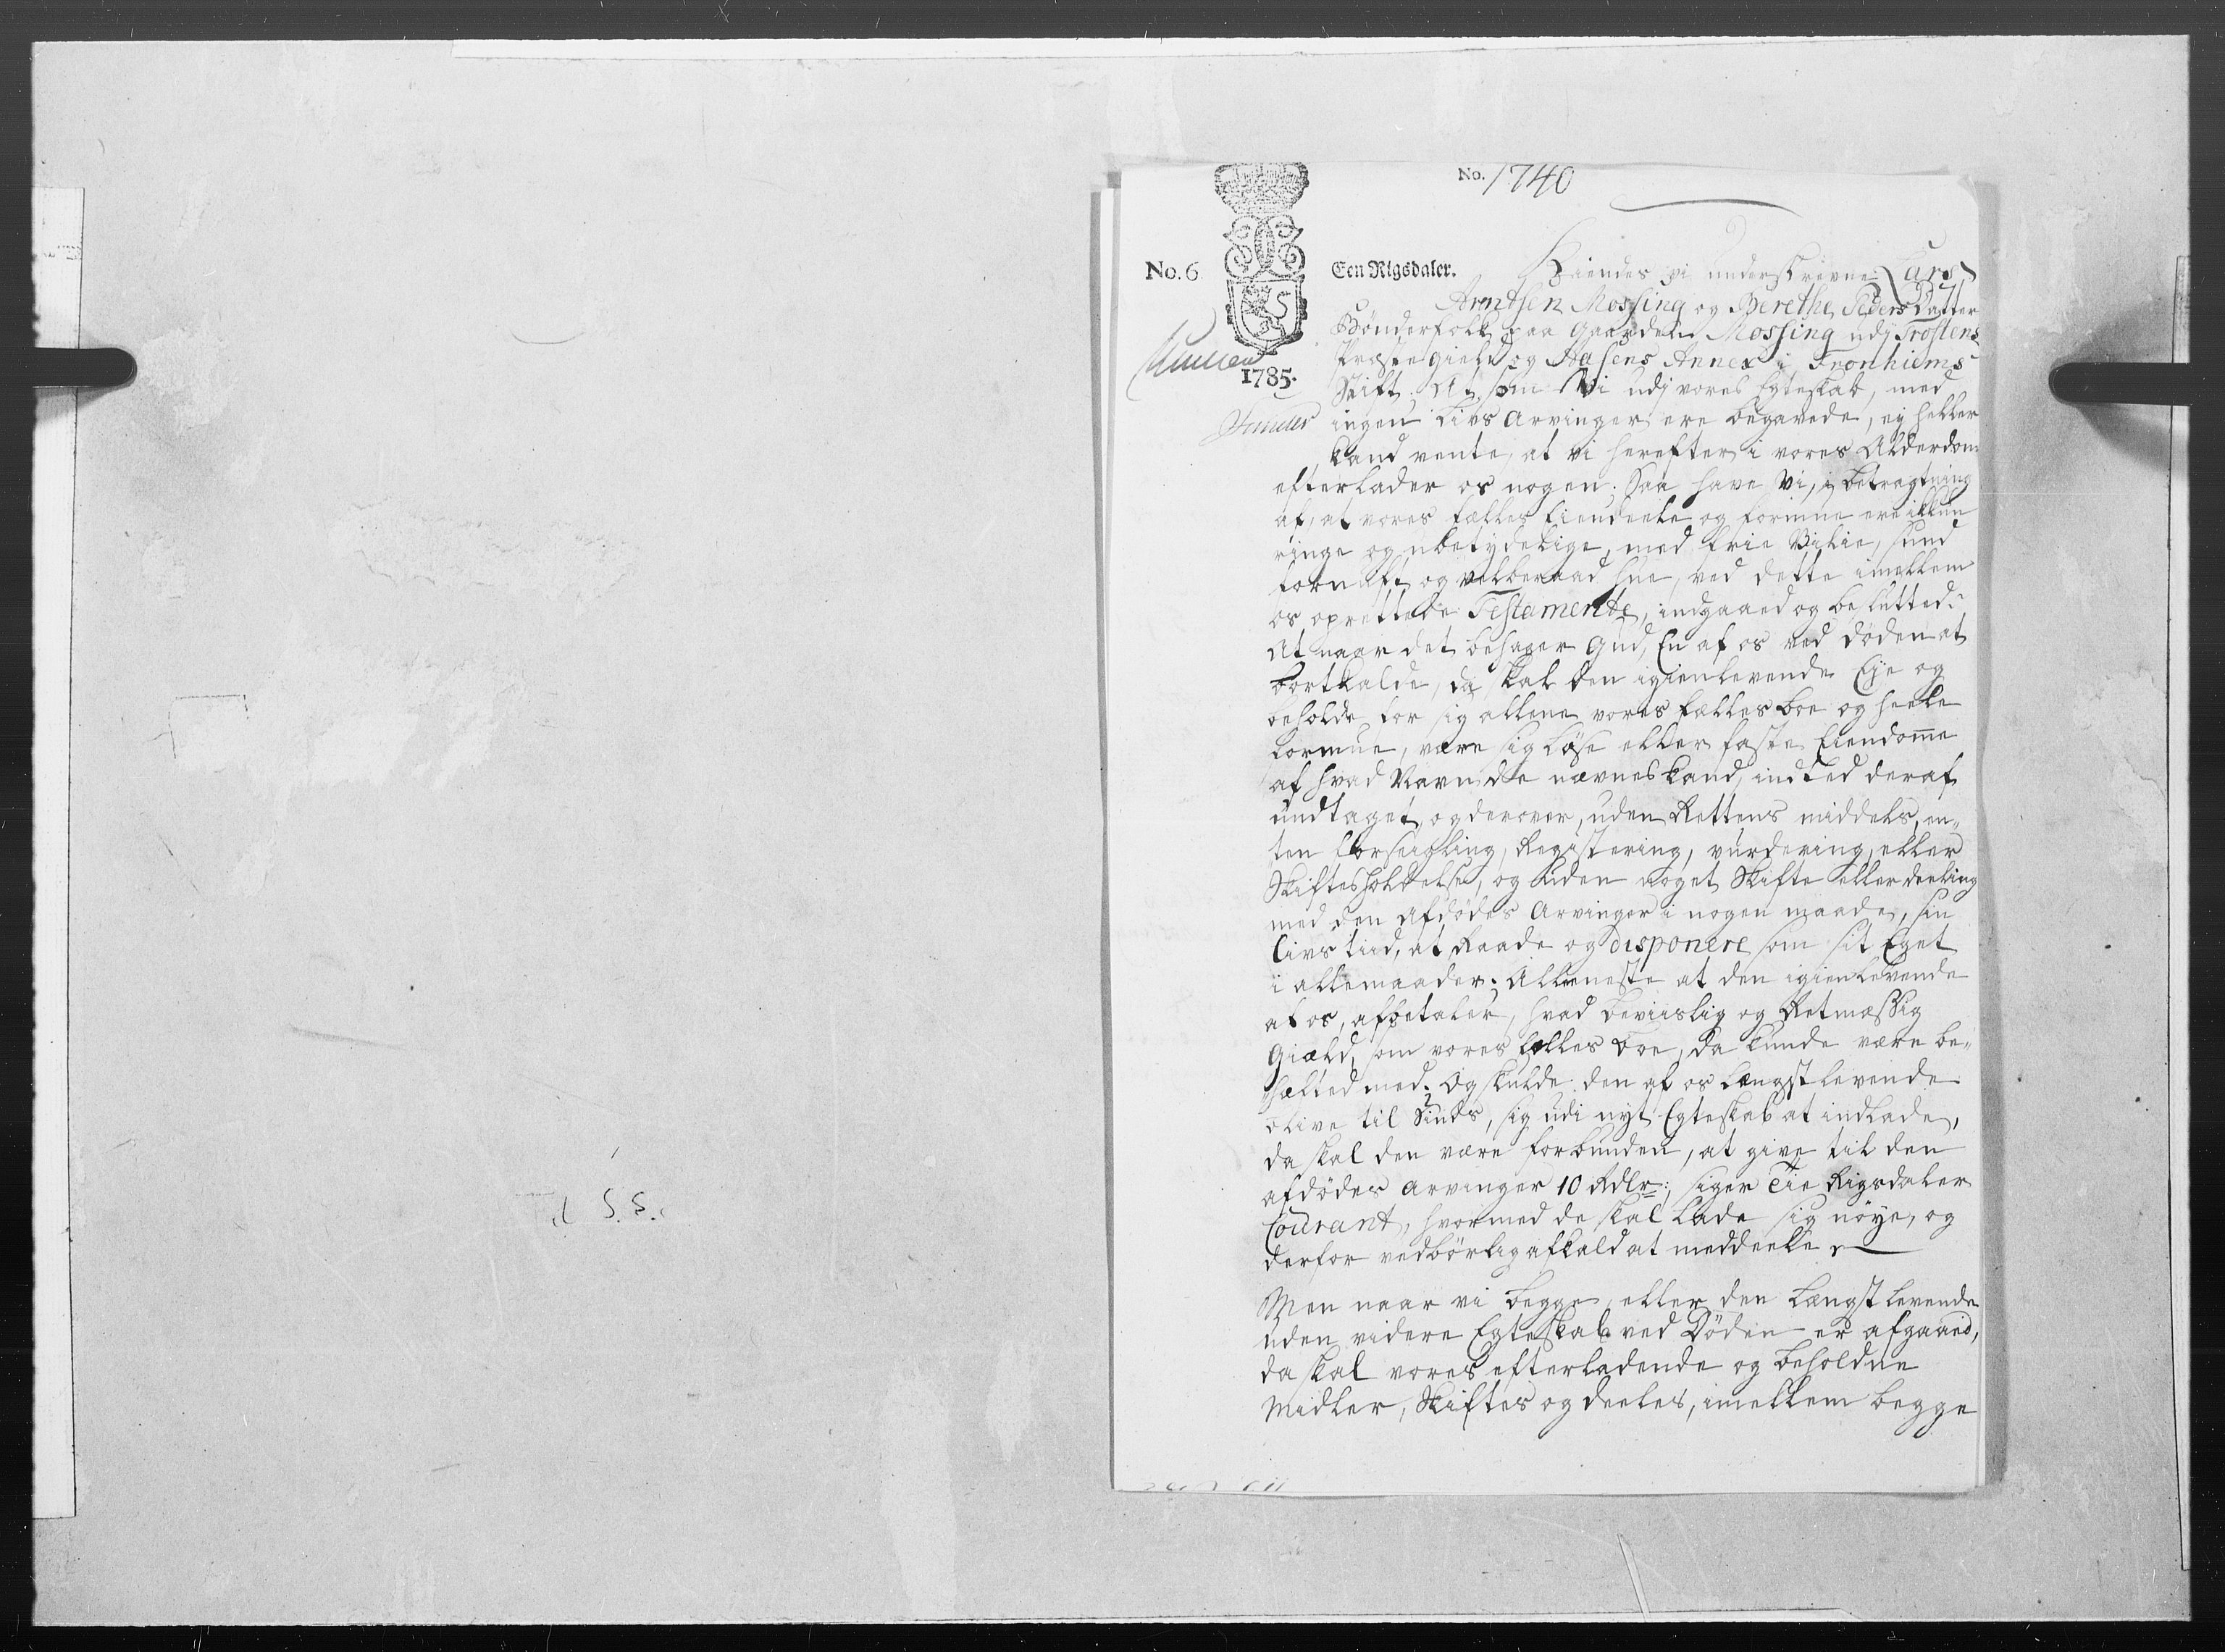 No. 1740
No. 6
Een Rigsdaler.
1785.
Kiendes vi underskrevne Lars
Arntsen Mossing og Berethe PedersDatter
Bønderfolk paa Gaarden Mossing udj Frostens
Præstegield og Aasens Annex i Tronhiems
Stift, At som Vi udj vores Egteskab, med
ingen Livs Arvinger ere begavede, ej heller
kand vente, at vi herefter i vores Alderdom
efterlader os nogen; Saa have Vi, i betragtning
af, at vores fælles Eiendeele og formue ere ikkun
ringe og ubetydelige, med frie Villie, sund
fornuft og velberaad hue, ved dette imellem
os oprettede Testamente, indgaaed og beslutted:
At naar det behager Gud, En af os ved døden at
bortkalde, da skal den igienlevende Eje og
beholde for sig allene vores fælles boe og heele
formue, være sig løse eller faste Eiendomme
af hvad Navn de nævnes kand, indted deraf
undtaget, og derover, uden Rettens middels, en-
ten forseigling, Registering, vurdering, eller
Skiftesholdelse, og uden noget Skifte eller deeling
med den afdødes Arvinger i nogen maade, sin
Livs tiid, at Raade og disponere som sit Eget
i allemaader; Alleneste at den igienlevende
af os, afbetaler, hvad beviislig og Retmæssig
Giæld, som vores fælles boe, da kunde være be-
hæfted med. Og skulde den af os længstlevende
blive til Sinds, sig udi nyt Egteskab at indlade,
da skal den være forbunden, at give til den
afdødes arvinger 10 Rdlr: siger Tie Rigsdaler
Courant, hvormed de skal lade sig nøye, og
derfor vedbørlig afkald at meddeele.
Men naar vi begge, eller den længst levende
uden videre Egteskab ved Døden er afgaaed,
da skal vores efterladende og beholdne
Midler, Skiftes og deeles, imellem begge
Til S. S.